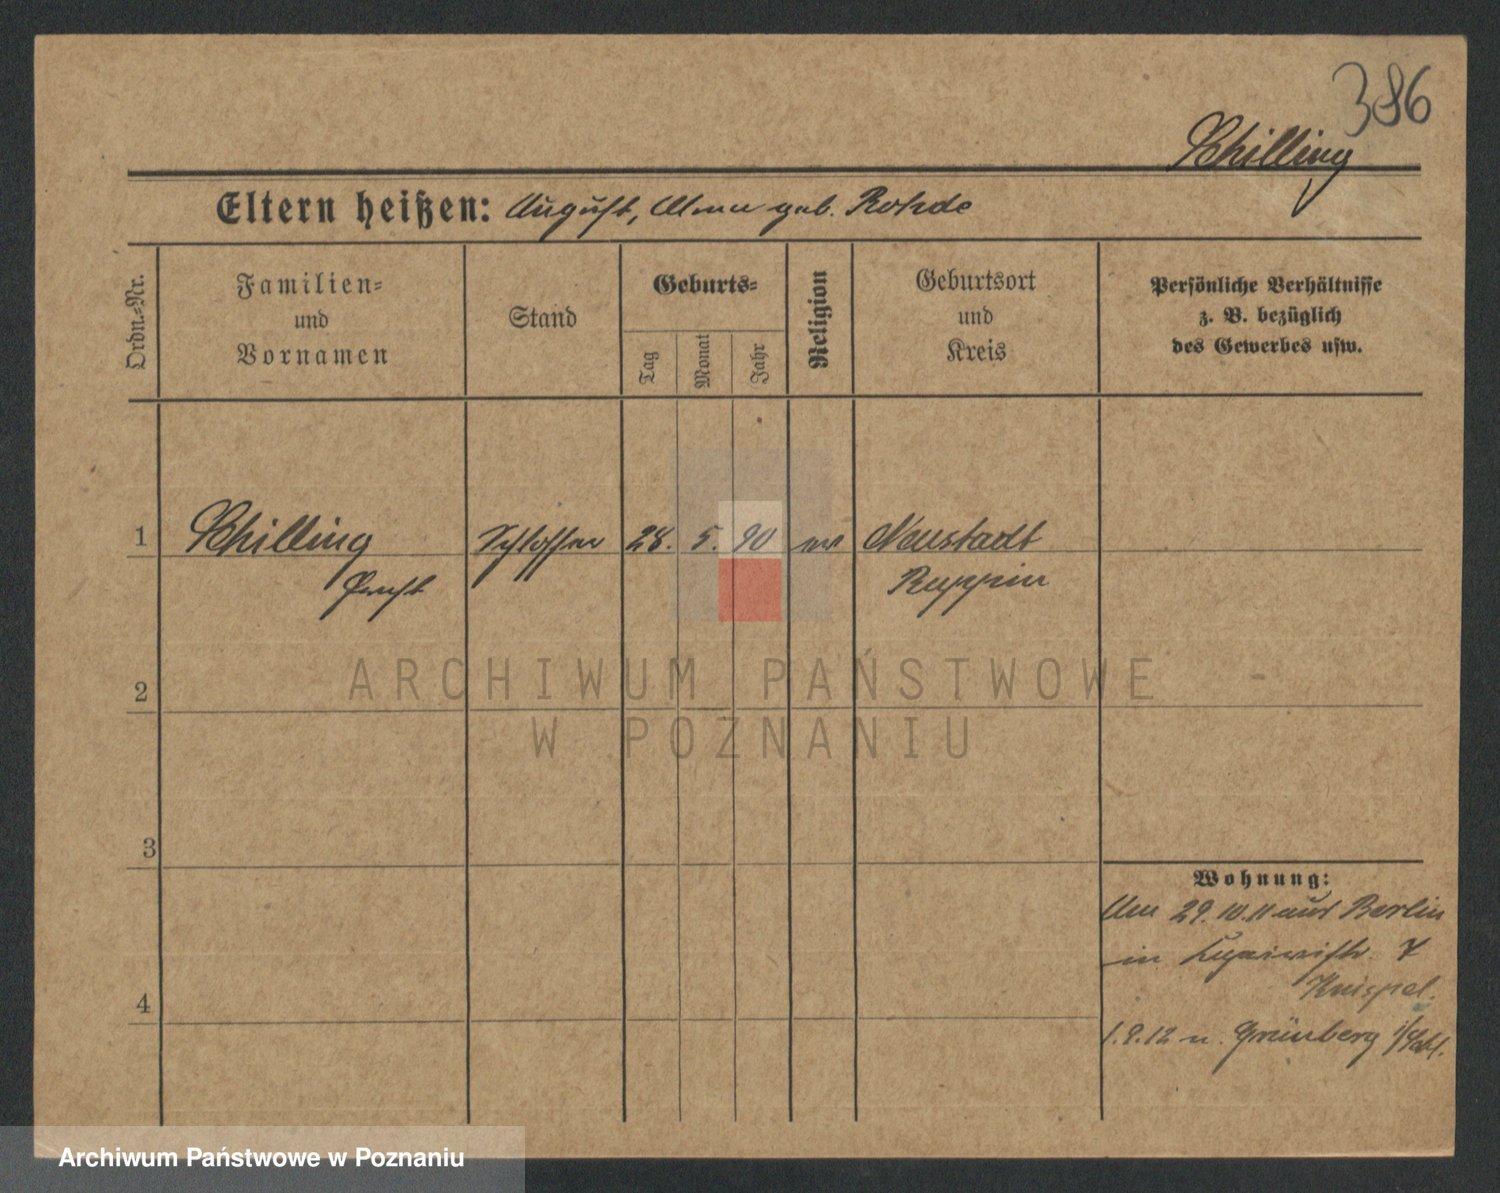 386
Schilling
Eltern heißen: August, Anna geb. Rohde
Ordn.-Nr.
Familien-
und
Vornamen
Stand
Geburts-
Tag
Monat
Jahr
Religion
Geburtsort
und
Kreis
Persönliche Verhältnisse
z. B. bezüglich
des Gewerbes usw.
1 Schilling Schlosser 28. 5. 90 ev Neustadt
Ernst Ruppin
2
3
4
Wohnung:
29.10.11 aus Berlin
in 7
Knispel.
1.9.12 n. Grünberg i/Schl.
ARCHIWUM PAŃSTWOWE
W POZNANIU
Archiwum Państwowe w Poznaniu